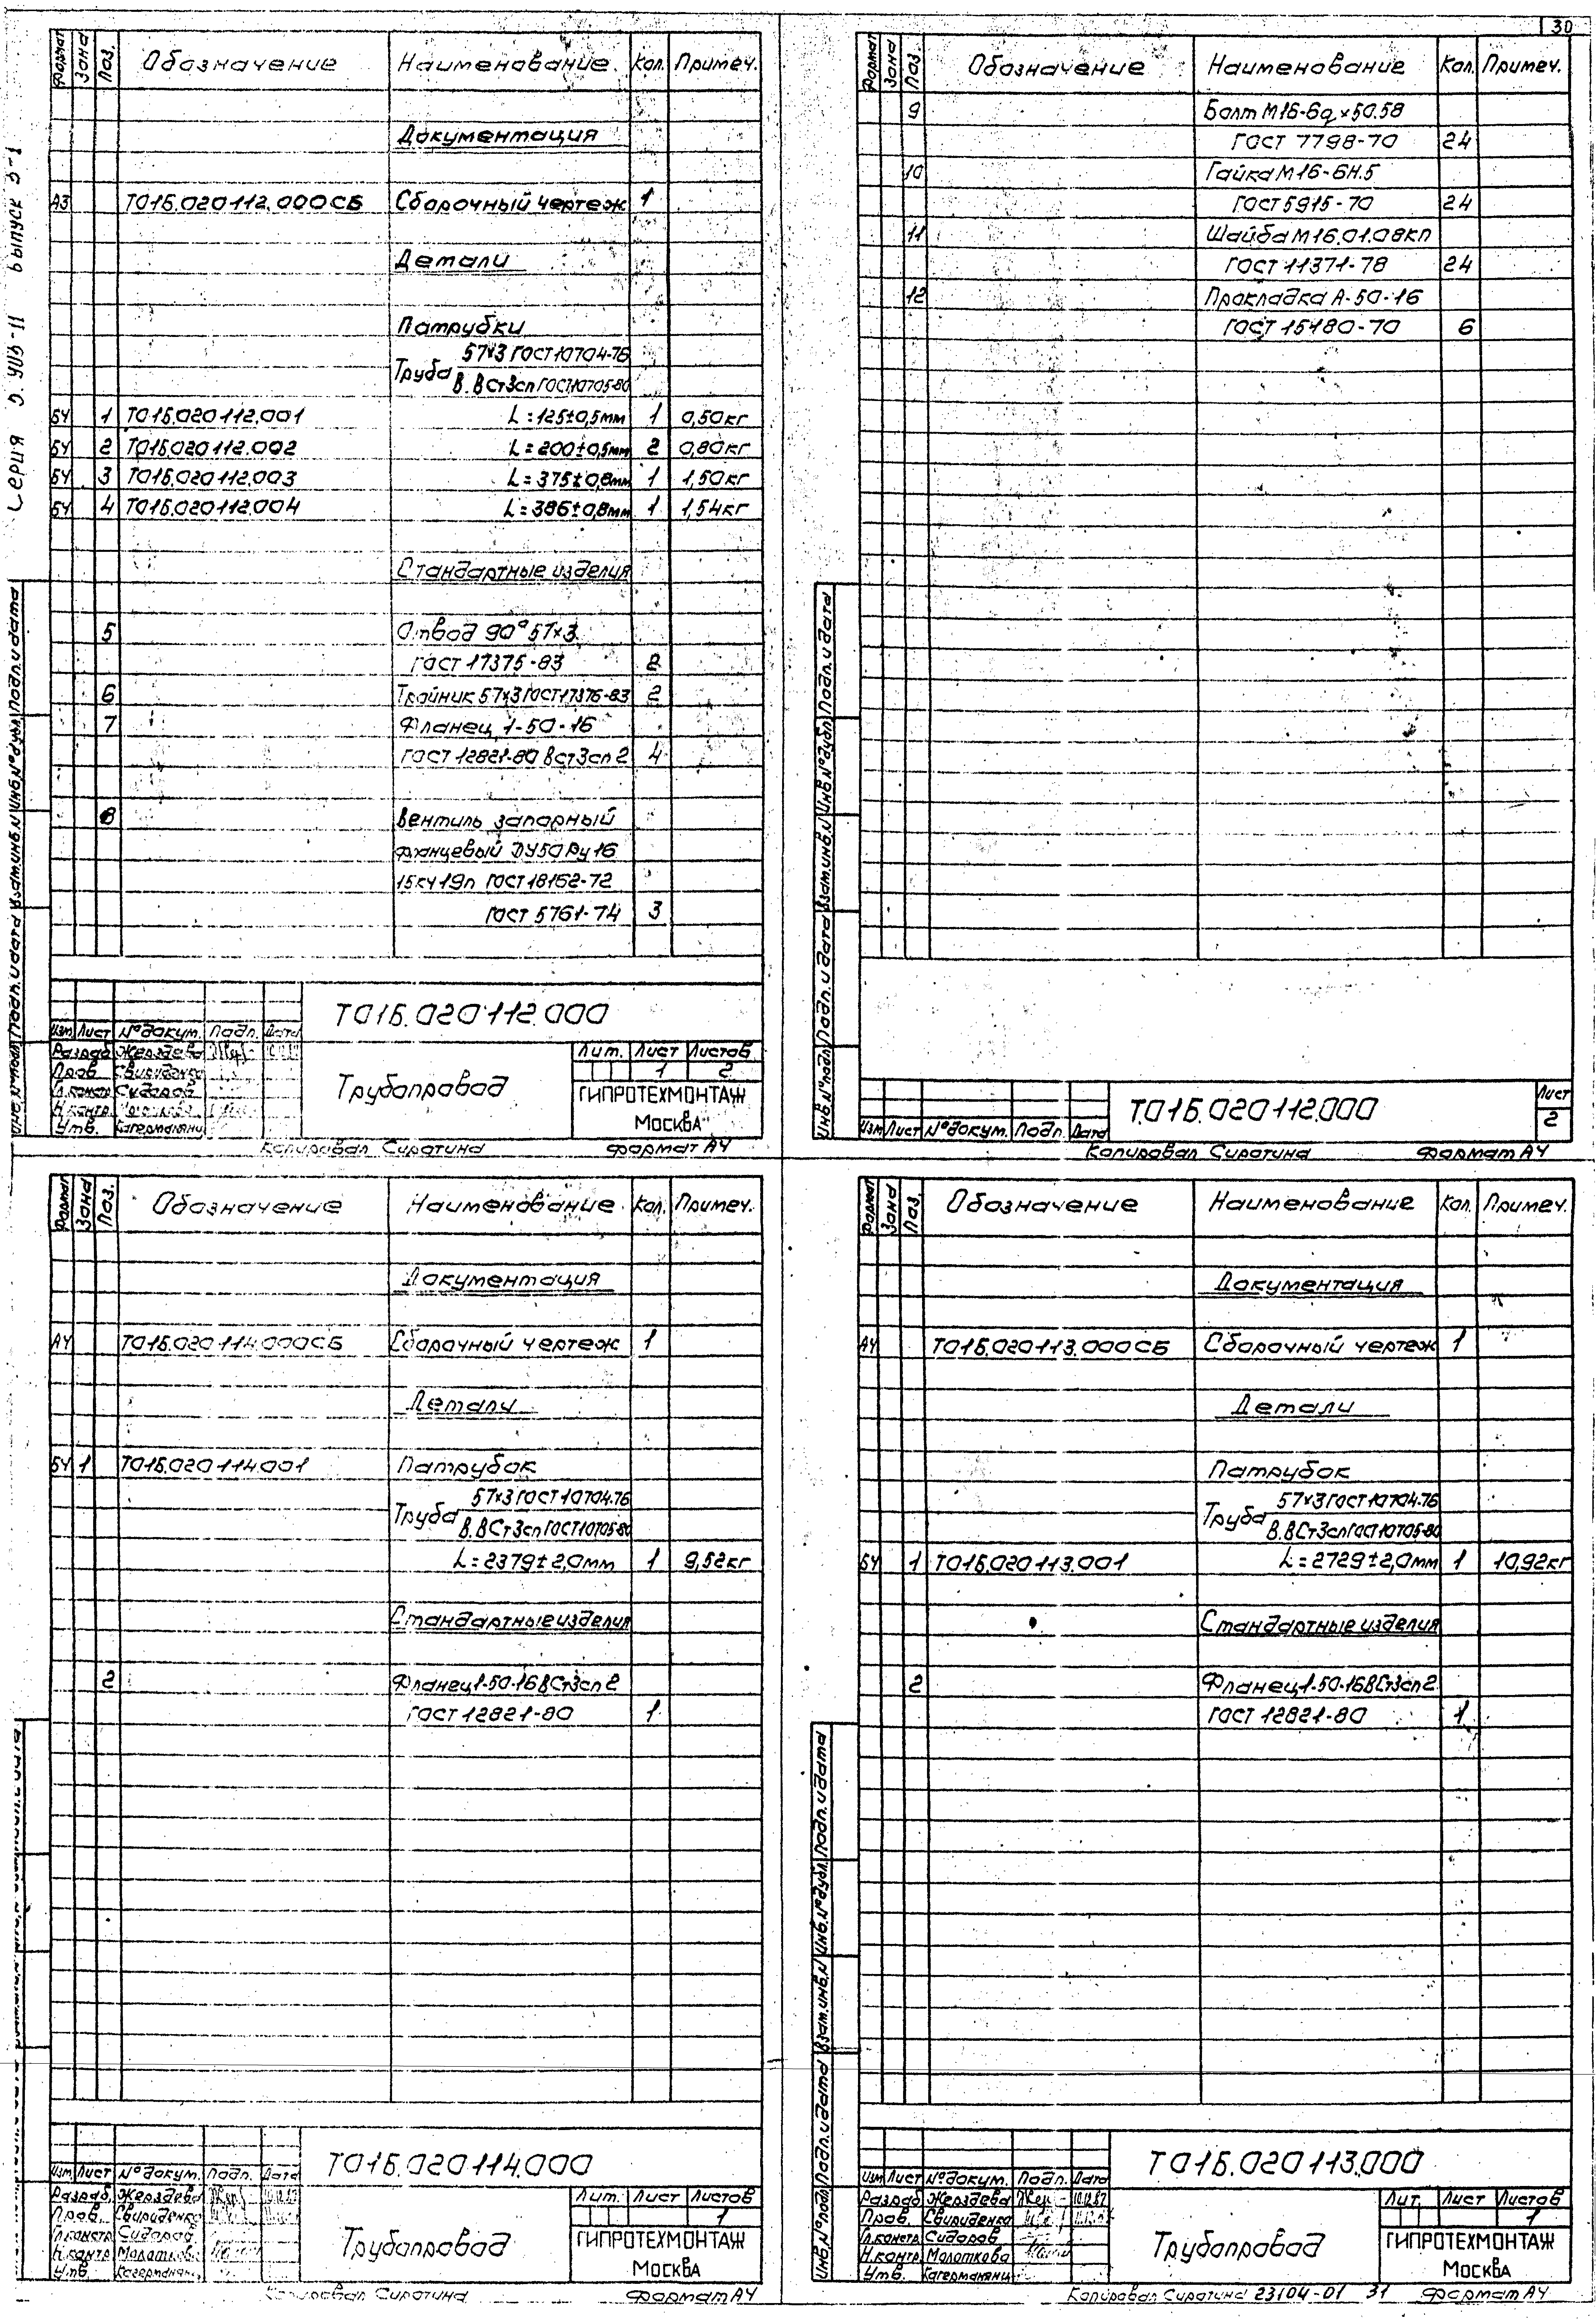 30
Серия 5.905-11 выпуск 3-1
Формат Зона Поз. Обозначение Наименование Кол. Примеч.
Документация
А3 Т01Б.020112.000СБ Сборочный чертеж 1
Детали
Патрубки
57×3 ГОСТ 10704-76
Труба
В.ВСт3сп ГОСТ 10705-80
БЧ 1 Т01Б.020112.001 L=125±0,5мм 1 0,50кг
БЧ 2 Т01Б.020112.002 L=200±0,5мм 2 0,80кг
БЧ 3 Т01Б.020112.003 L=375±0,8мм 1 1,50кг
БЧ 4 Т01Б.020112.004 L=386±0,8мм 1 1,54кг
Стандартные изделия
5 Отвод 90° 57×3
ГОСТ 17375-83 2
6 Тройник 57×3 ГОСТ 17376-83 2
7 Фланец 1-50-16
ГОСТ 12821-80 ВСт3сп2 4
8 Вентиль запорный
фланцевый ДУ50 Ру16
15кч19п ГОСТ 18162-72
ГОСТ 5761-74 3
Т01Б.020112.000
Изм Лист №докум. Подп. Дата
Разраб Жерздева
Пров. Свириденко
Гл.констр Сидоров
Н.контр.
Утв. Кагерманянц
Трубопровод
Лит. Лист Листов
1 2
ГИПРОТЕХМОНТАЖ
Москва
Копировал Сиротина Формат А4
Подп. и дата
Инв.№дубл.
Взам.инв.№
Подп. и дата
Формат Зона Поз. Обозначение Наименование Кол. Примеч.
9 Болт М16-6g×50.58
ГОСТ 7798-70 24
10 Гайка М16-6Н.5
ГОСТ 5915-70 24
11 Шайба М16.01.08кп
ГОСТ 11371-78 24
12 Прокладка А-50-16
ГОСТ 15180-70 6
Инв.№подл Подп. и дата Взам.инв.№ Инв.№дубл Подп. и дата
Изм Лист №докум. Подп. Дата
Т.01Б.020112.000
Лист
2
Копировал Сиротина Формат А4
Формат Зона Поз. Обозначение Наименование Кол. Примеч.
Документация
А4 Т01Б.020114.000СБ Сборочный чертеж 1
Детали
БЧ 1 Т01Б.020114.001 Патрубок
57×3 ГОСТ 10704-76
Труба
В.ВСт3сп ГОСТ 10705-80
L=2379±2,0мм 1 9,52кг
Стандартные изделия
2 Фланец 1-50-16 ВСт3сп2
ГОСТ 12821-80 1
Т01Б.020114.000
Изм Лист №докум. Подп. Дата
Разраб. Жерздева
Пров. Свириденко
Гл.констр Сидоров
Н.контр Молоткова
Утв. Кагерманянц
Трубопровод
Лит. Лист Листов
1
ГИПРОТЕХМОНТАЖ
Москва
Копировал Сиротина Формат А4
Формат Зона Поз. Обозначение Наименование Кол. Примеч.
Документация
А4 Т01Б.020113.000СБ Сборочный чертеж 1
Детали
Патрубок
57×3 ГОСТ 10704-76
Труба
В.ВСт3сп ГОСТ 10705-80
БЧ 1 Т01Б.020113.001 L=2729±2,0мм 1 10,92кг
Стандартные изделия
2 Фланец 1-50-16 ВСт3сп2
ГОСТ 12821-80 1
Инв.№подл Подп. и дата Взам.инв.№ Инв.№дубл. Подп. и дата
Т01Б.020113.000
Изм Лист №докум. Подп. Дата
Разраб Жерздева 10.12.87
Пров. Свириденко
Гл.констр. Сидоров
Н.контр Молоткова
Утв. Кагерманянц
Трубопровод
Лит. Лист Листов
1
ГИПРОТЕХМОНТАЖ
Москва
Копировал Сиротина 23104-01 31 Формат А4